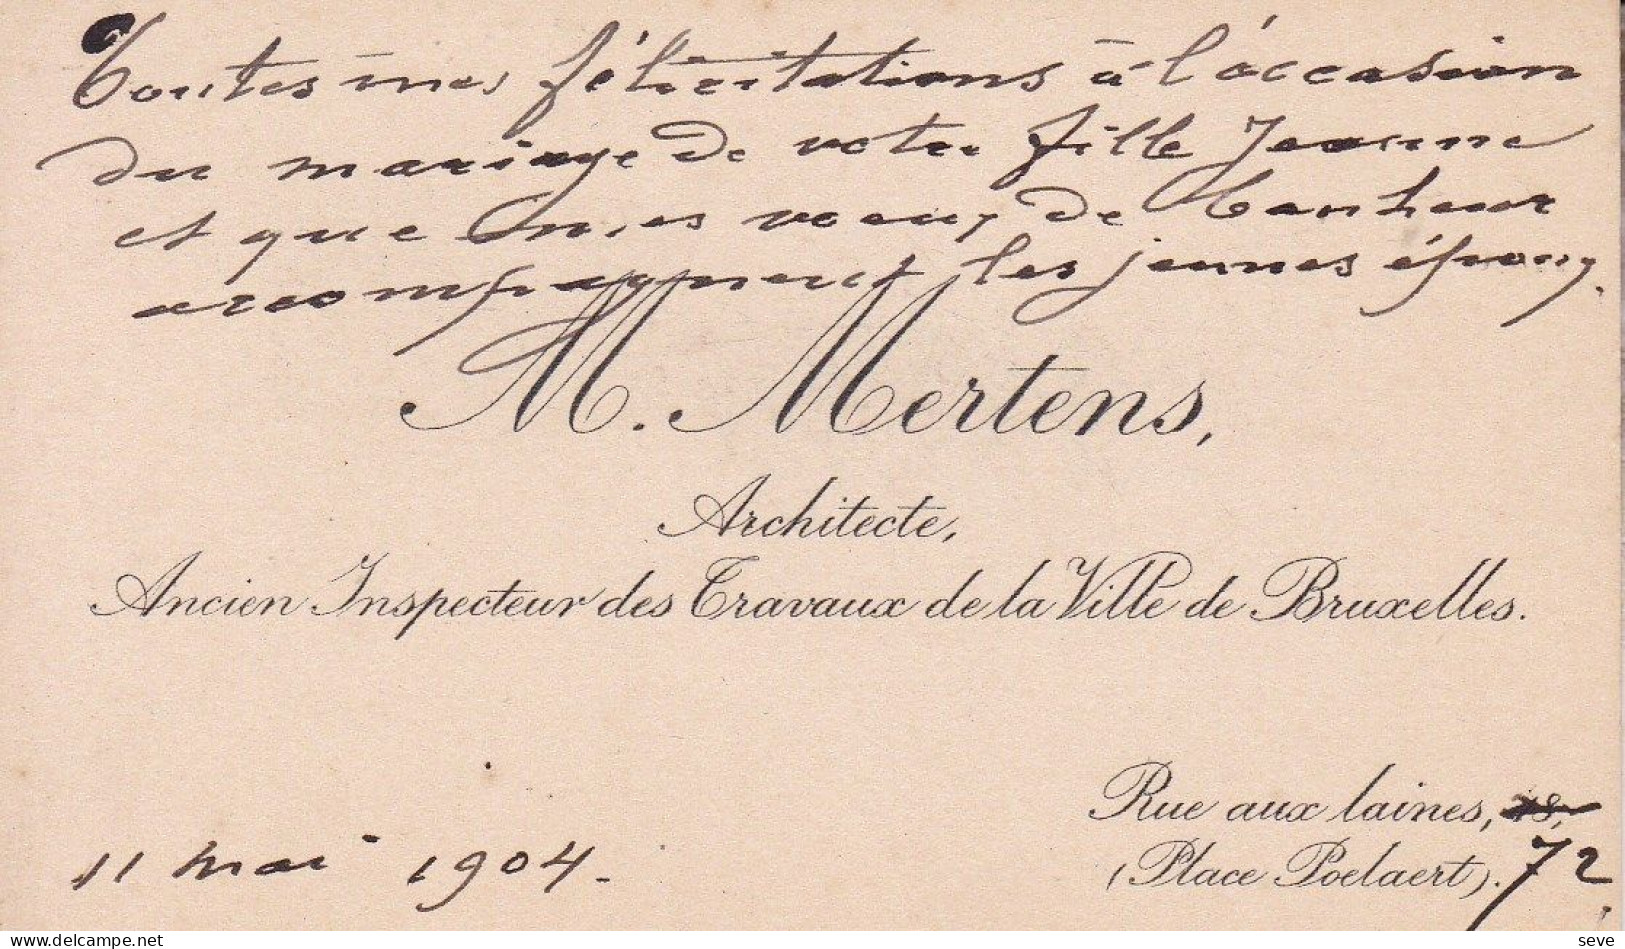 Toutes mes félicitations à l'occasion
du mariage de votre fille Jeanne
et que mes voeux de bonheur
accompagnent les jeunes époux.
M. Mertens,
Architecte,
Ancien Inspecteur des Travaux de la Ville de Bruxelles.
Rue aux laines, 18,
(Place Poelaert). 72
11 mai 1904.
delcampe.net
seve